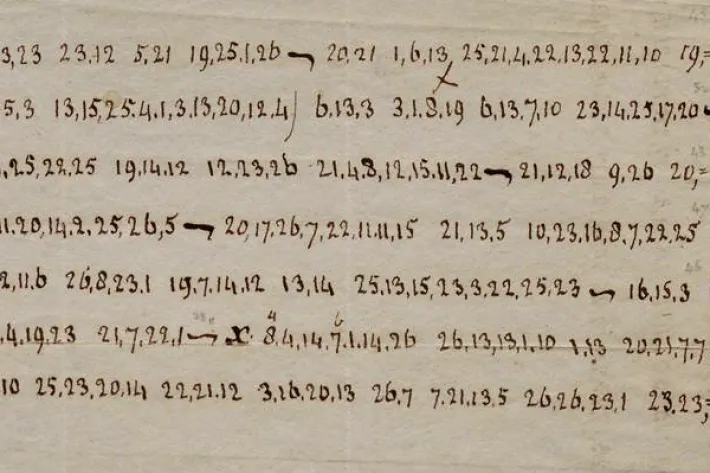 3,23 23,12 5,21 19,25,1,26 ~ 20,21 1,6,13, 25,21,4,22,13,22,11,10 19,=
5,3 13,15,25.4.1,3.13,20,12.4) 6.13,3 3.1.8,19 6,13.7,10 23,14.25,17,20~
,25,22,25 19.14.12 12,23,26 21.4.8,12,15.11,22 ~ 21,12,18 9,26 20,=
11.20,14.2,25,26,5 ~ 20,17.26,7,22,11.11,15 21,13,5 10,23.16,8.7,22,25
2,11.6 26,8,23.1 19.7.14,12 13,14 25.13,15,23,3.22,25,23 ~ 16,15,3
,4,19.23 21,7,22,1 ~ x. 8,4,14,7,1,14,26 26,13,13,1,10 1,13 20,21,7,7
10 25,23,20,14 22,21.12 3,16,20,13 26,7 7.21,13,5 26,26,23,1 23.23,=